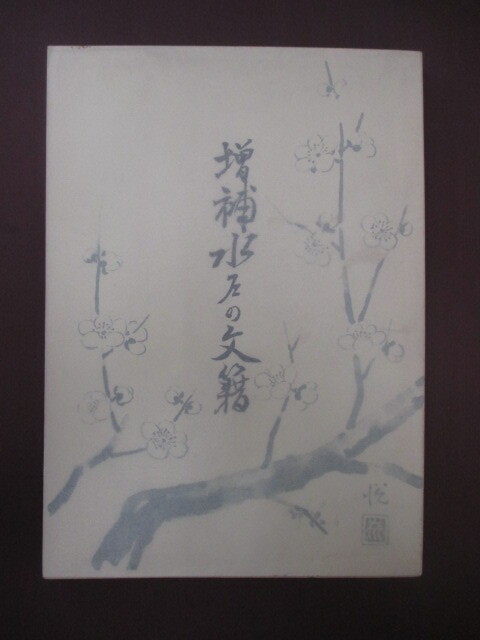 増補水石の文籍
悦